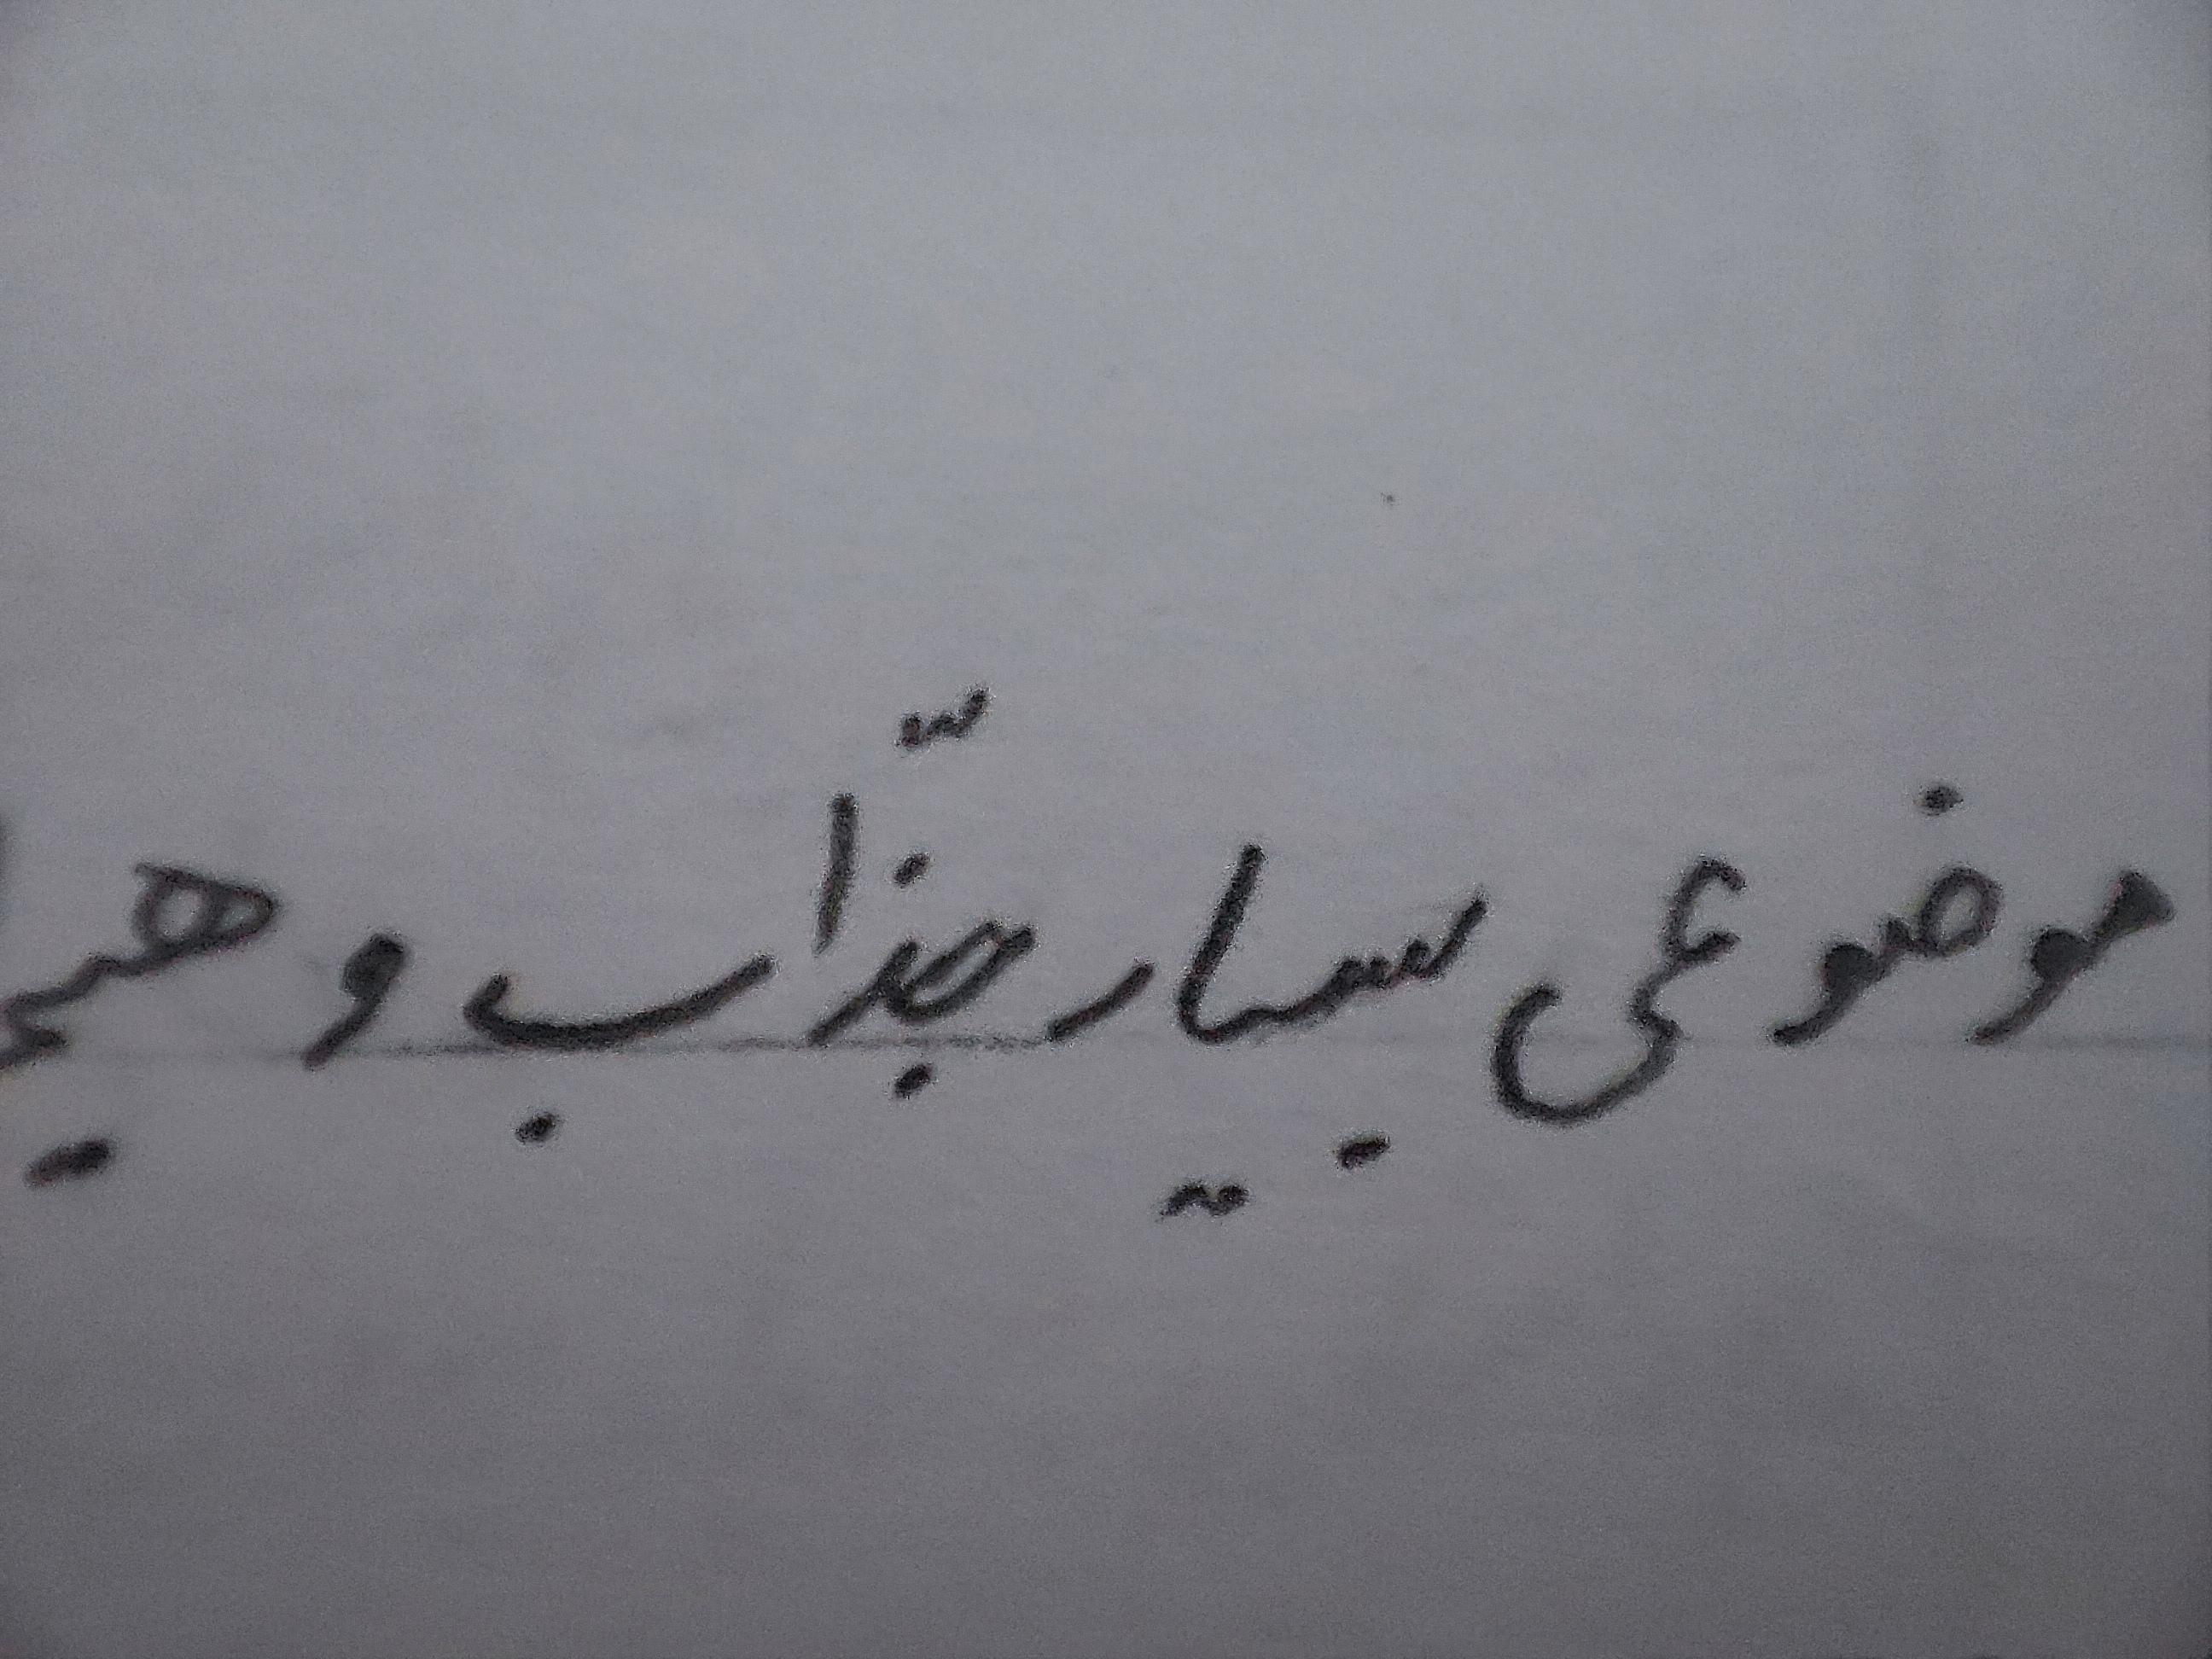 موضوعی بسیار جذّاب و